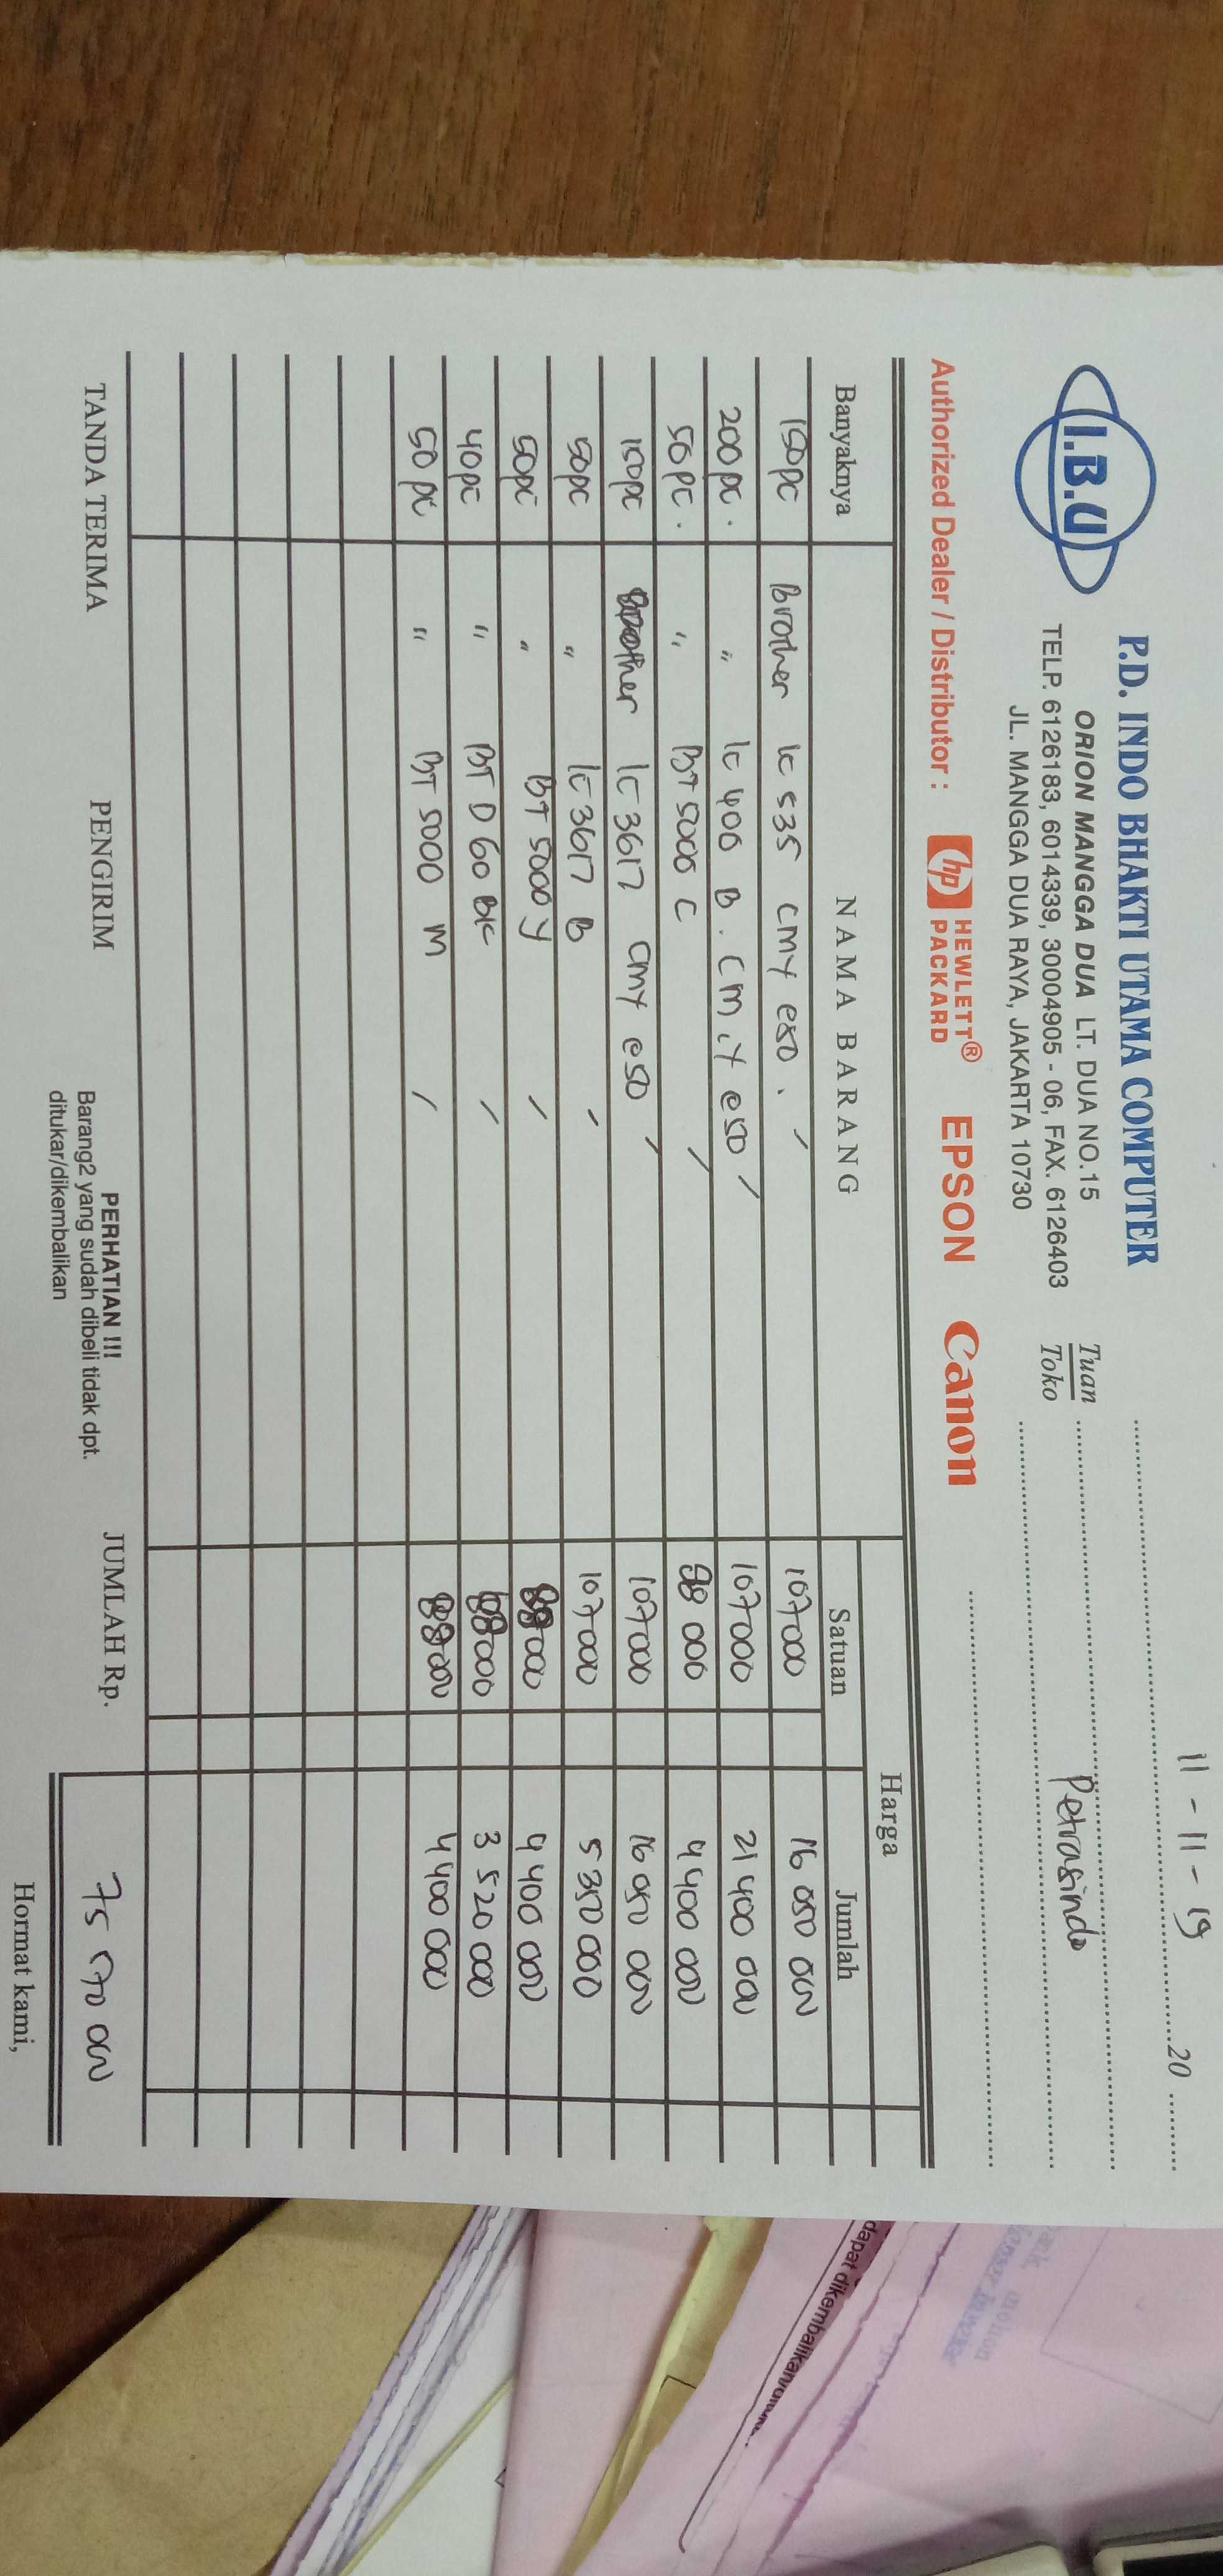 11 - 11 - 19 20
I.B.U
P.D. INDO BHAKTI UTAMA COMPUTER
ORION MANGGA DUA LT. DUA NO.15
TELP. 6126183, 6014339, 30004905 - 06, FAX. 6126403
JL. MANGGA DUA RAYA, JAKARTA 10730
Tuan
Toko
Petrasindo
Authorized Dealer / Distributor : hp HEWLETT® PACKARD EPSON Canon
Banyaknya NAMA BARANG Harga
Satuan Jumlah
150pc Brother lc 535 CMY @50. 107000 16 050 000
200pc. " lc 400 B. C M. Y @50 107000 21 400 000
50 pc. " BT 5000 C 88 000 4 400 000
150pc Brother lc 3617 CMY @50 107000 16 050 000
50pc " lc 3617 B 107000 5 350 000
50pc " BT 5000 Y 88000 4 400 000
40pc " BT D 60 BK 88000 3 520 000
50 pc " BT 5000 M 88000 4 400 000
TANDA TERIMA PENGIRIM
PERHATIAN !!!
Barang2 yang sudah dibeli tidak dpt.
ditukar/dikembalikan
JUMLAH Rp. 75 570 000
Hormat kami,